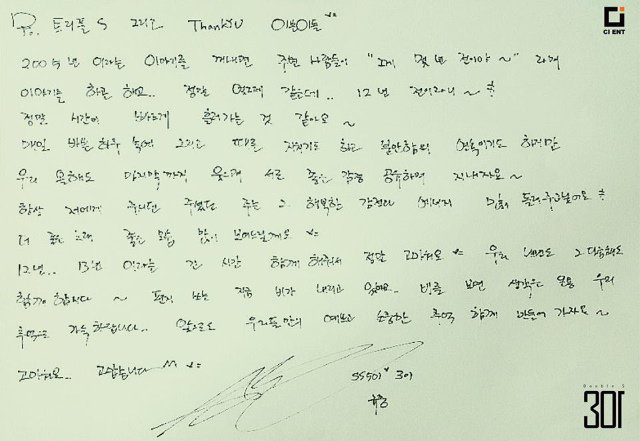 To. 트리플 S 그리고 ThankYU 이쁜이들^^
Ci
CI ENT
2005년 이라는 이야기를 꺼내면 주변 사람들이 "그게 몇 년 전이야~" 라며
이야기를 하곤 해요.. 정말 엊그제 같은데.. 12년 전이라니~
정말 시간이 빠르게 흘러가는 것 같아요~
매일 바쁜 하루 속에 그리고 때론 지치기도 하고 불안함의 연속이기도 하지만
우리 올해도 마지막까지 웃으며 서로 좋은 감정 공유하며 지내자요~
항상 저에게 주는 그 행복한 감정과 에너지 돌려주고싶어요
더 좋은 노래 좋은 모습 많이 보여드릴게요 ^^
12년.. 13년 이라는 긴 시간 함께해줘서 정말 고마워요 ^^ 우리 내년도 그 다음해도
함께 합시다~ 편지 쓰는 지금 비가 내리고 있어요.. 비를 보면 생각나는 온통 우리
추억으로 가득하답니다.. 앞으로도 우리들만의 예쁘고 소중한 추억 함께 만들어 가자요~
고마워요.. 고맙습니다 ^^
SS501 301
Double S
301